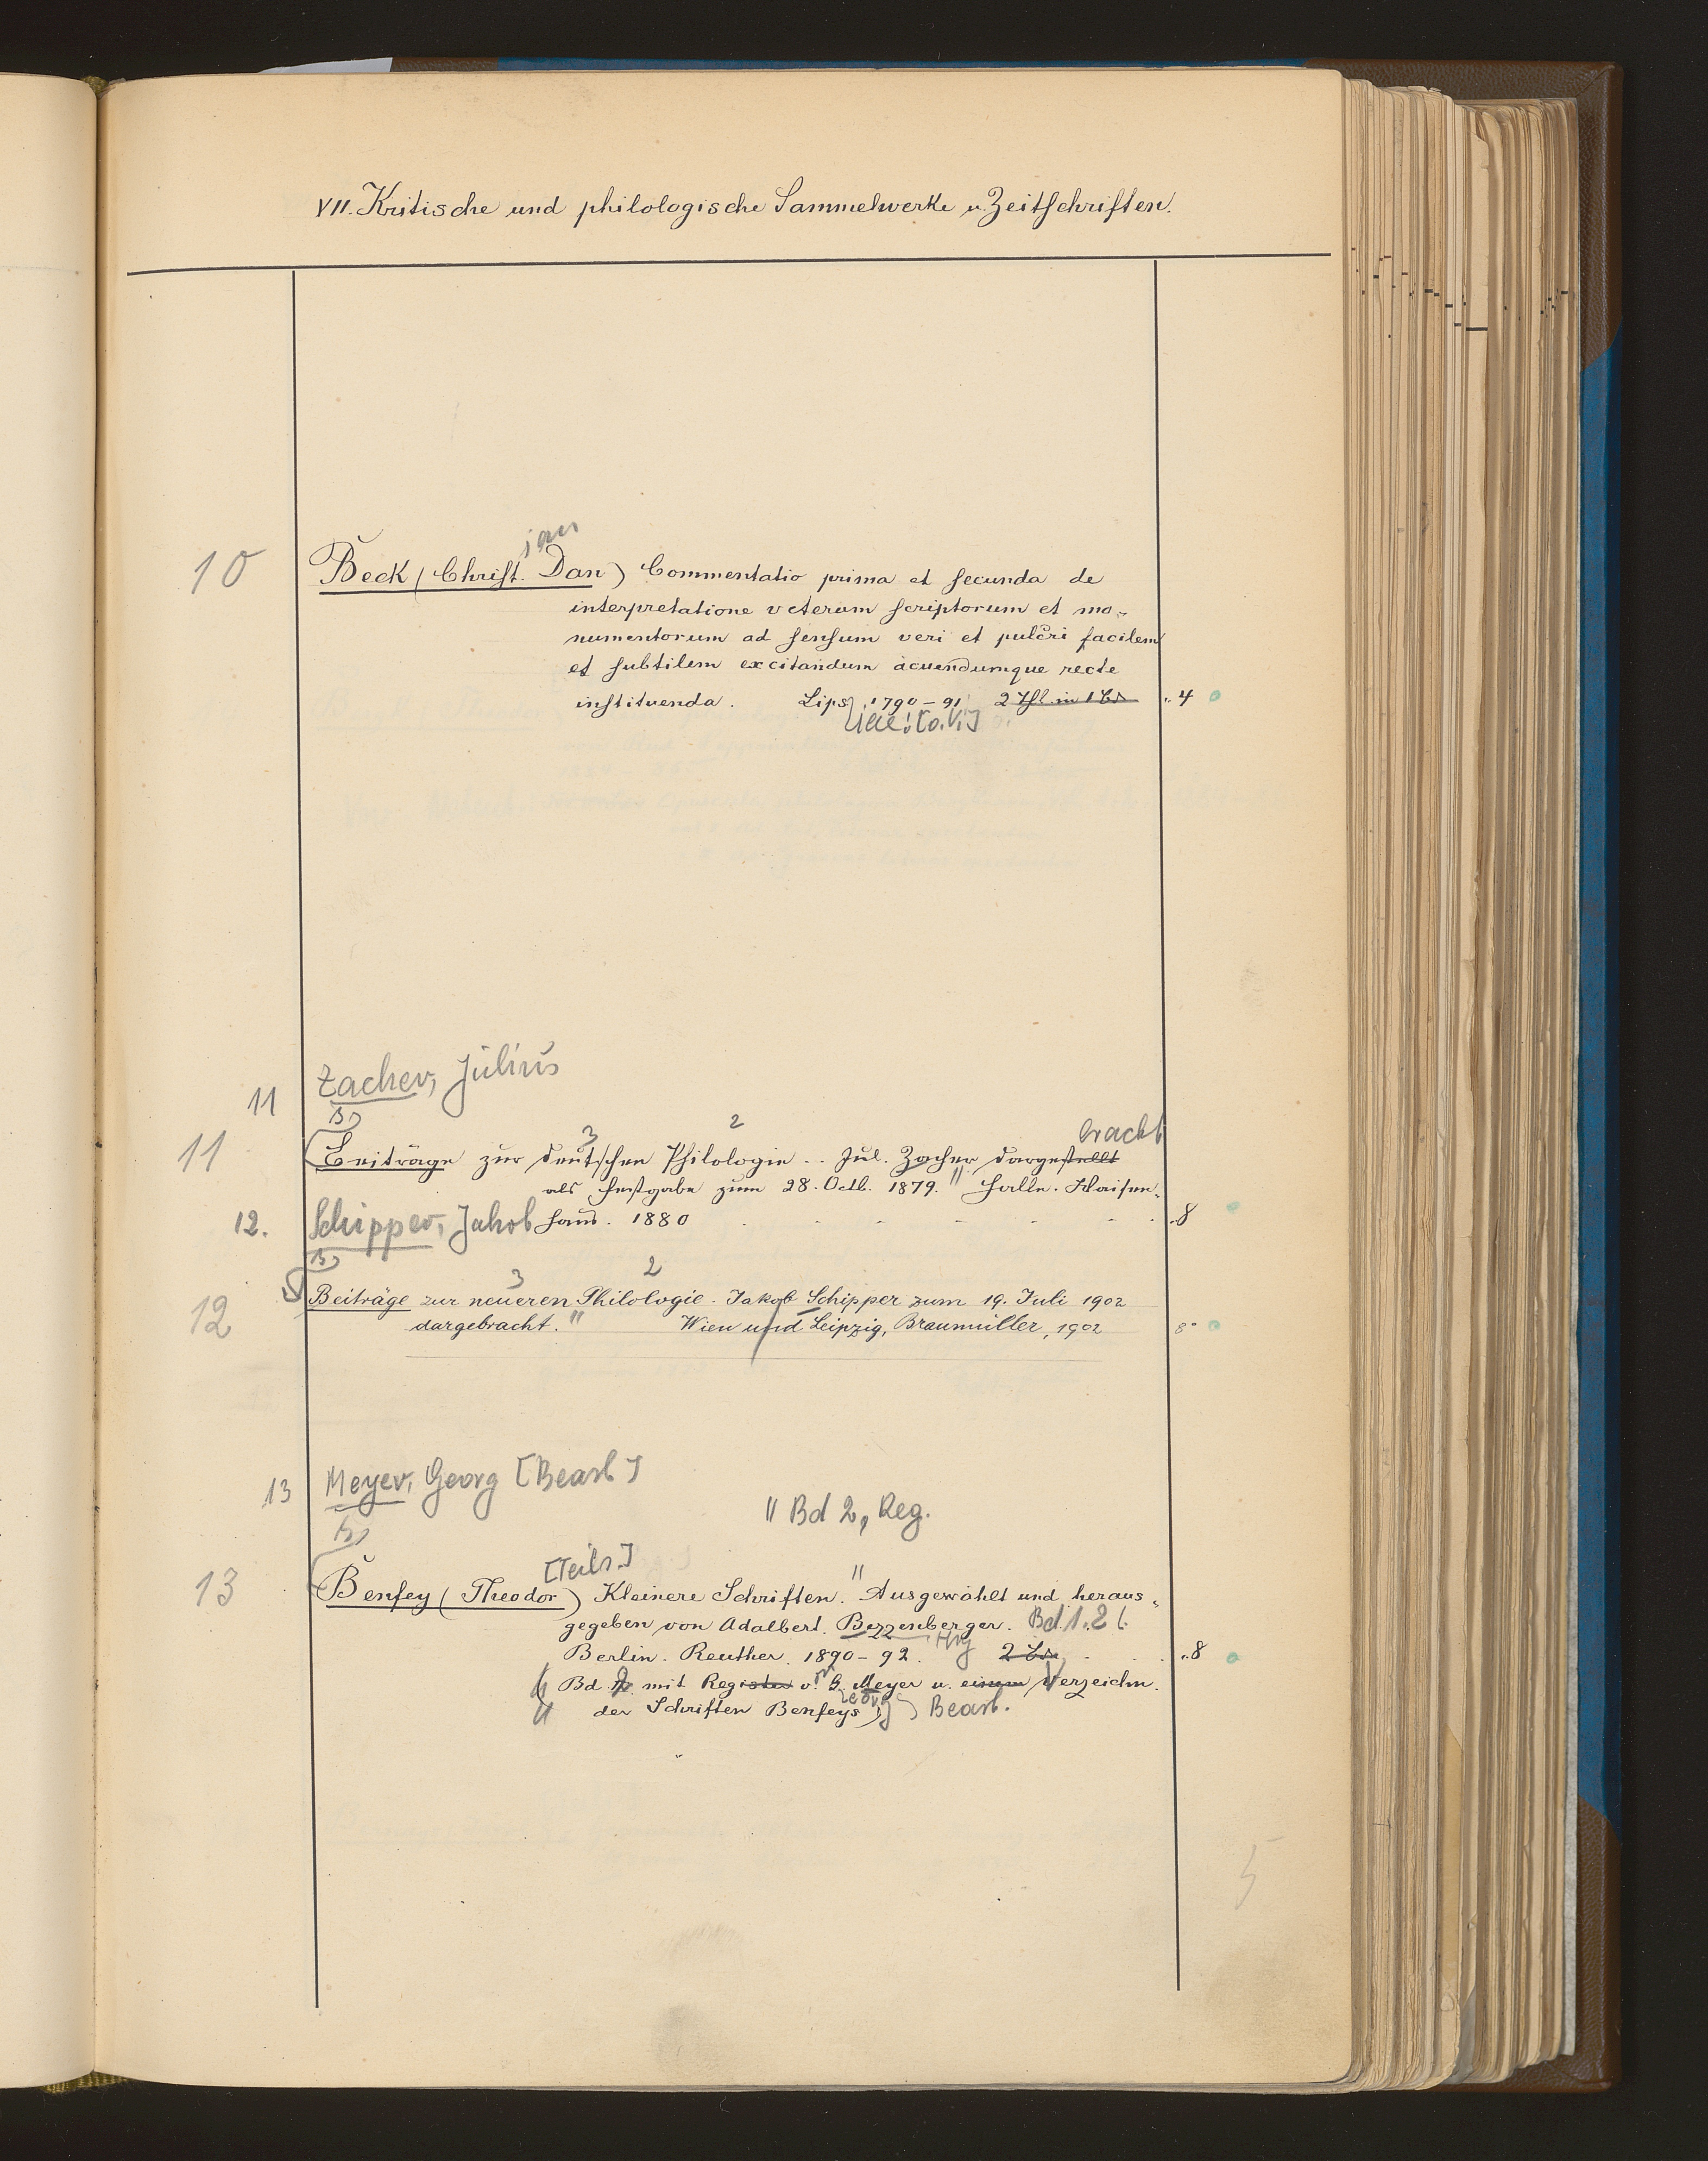 VII. Kritische und philologische Sammelwerke u. Zeitschriften.
ian
10 Beck (Christ. Dan) Commentatio prima et secunda de
interpretatione veterum scriptorum et mo-
numentorum ad sensum veri et pulcri facilem
et subtilem excitandum acuendumque recte
instituenda. Lips. 1790-91 2 Thl. in 1 Bd. 4
iae: [o. V.]
Zacher, Julius
11
3 2 bracht
11 Beiträge zur deutschen Philologie .. Jul. Zacher dargestellt
als Festgabe zum 28. Octb. 1879. " Halle. Waisen-
12. Schipper, Jakob haus. 1880 8
3 2
12 Beiträge zur neueren Philologie. Jakob Schipper zum 19. Juli 1902
dargebracht. " Wien und Leipzig, Braumüller, 1902 8°
13 Meyer, Georg [Bearb]
" Bd 2, Reg.
[Teils.]
13 Benfey (Theodor) Kleinere Schriften. " Ausgewählt und heraus-
gegeben von Adalbert Bezzenberger. Bd. 1. 2
Berlin. Reuther. 1890-92. Hrg 2 Bde 8
Bd 2 mit Register v. G. Meyer u. einem Verzeichn.
eorg
der Schriften Benfeys Bearb.
5